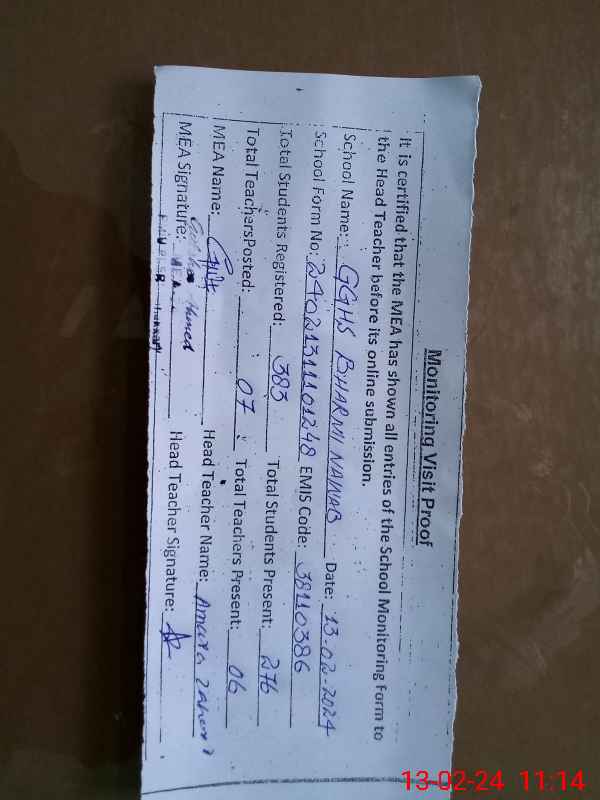 Monitoring Visit Proof
It is certified that the MEA has shown all entries of the School Monitoring Form to
the Head Teacher before its online submission.
School Name: GGHS BHARMI NAWAB Date: 13-02-2024
School Form No: 2402131101248 EMIS Code: 38110386
Total Students Registered: 383 Total Students Present: 276
Total TeachersPosted: 07 Total Teachers Present: 06
MEA Name: Head Teacher Name: Amara
MEA Signature: Ahmed Head Teacher Signature:
MEA
13-02-24 11:14